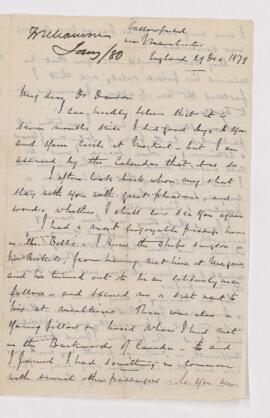 W
Jany/80
near Manchester
England 29 Dec. 1879
My dear Dr Dawson
I can hardly believe that it is
seven months since I bid good bye to you
and your circle at Montreal - but I am
assured by the Calendar that it is so
I often look back upon my short
stay with you with great pleasure, and
wonder whether I shall ever see you again
I had a most enjoyable passage home
in the Baltic. I knew the ships surgeon
from having met him at
and he turned out to be an
fellow - and secured me a seat next to
him at mealtimes. There was also a
young fellow on board whom I had met
in the Backwood of Canada - &
I found I had something in common
with several other passengers